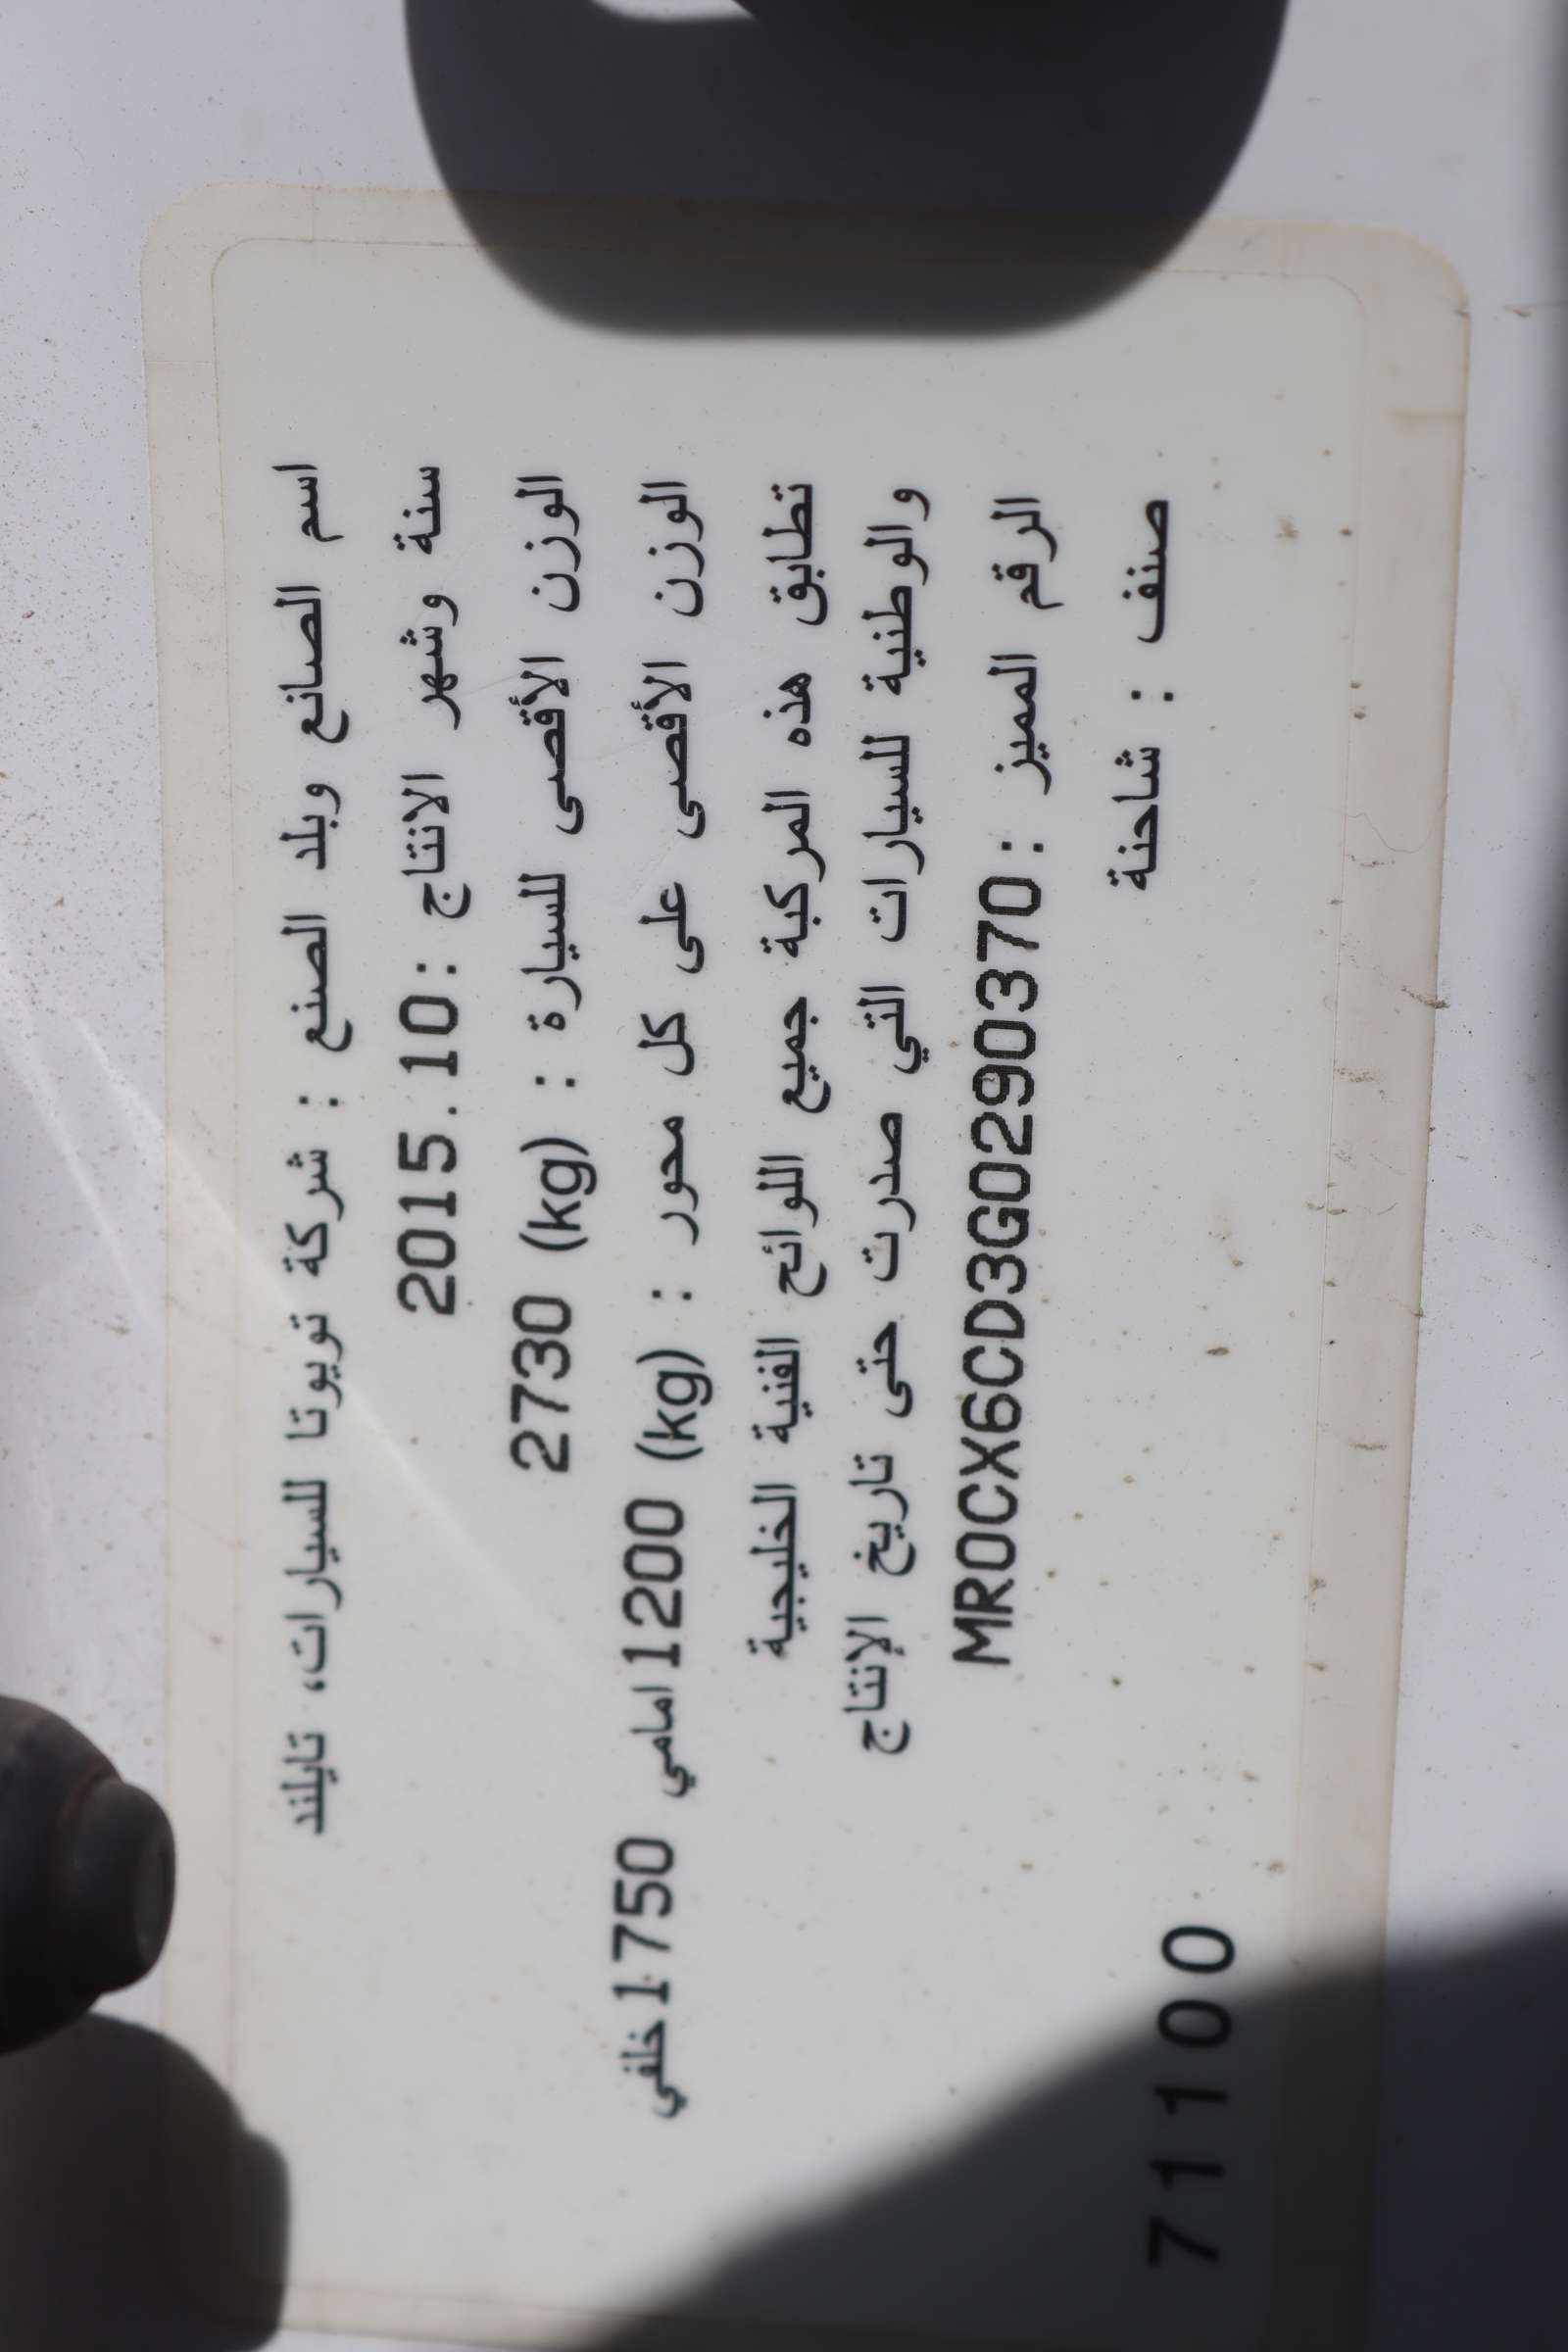 اسم الصانع وبلد الصنع : شركة تويوتا للسيارات، تايلند
سنة وشهر الانتاج : 2015.10
الوزن الأقصى للسيارة : (kg) 2730
الوزن الأقصى على كل محور : (kg) 1200 امامي 1750 خلفي
تطابق هذه المركبة جميع اللوائح الفنية الخليجية
والوطنية للسيارات التي صدرت حتى تاريخ الإنتاج
الرقم المميز : MR0CX6CD3G0290370
صنف : شاحنة
71100